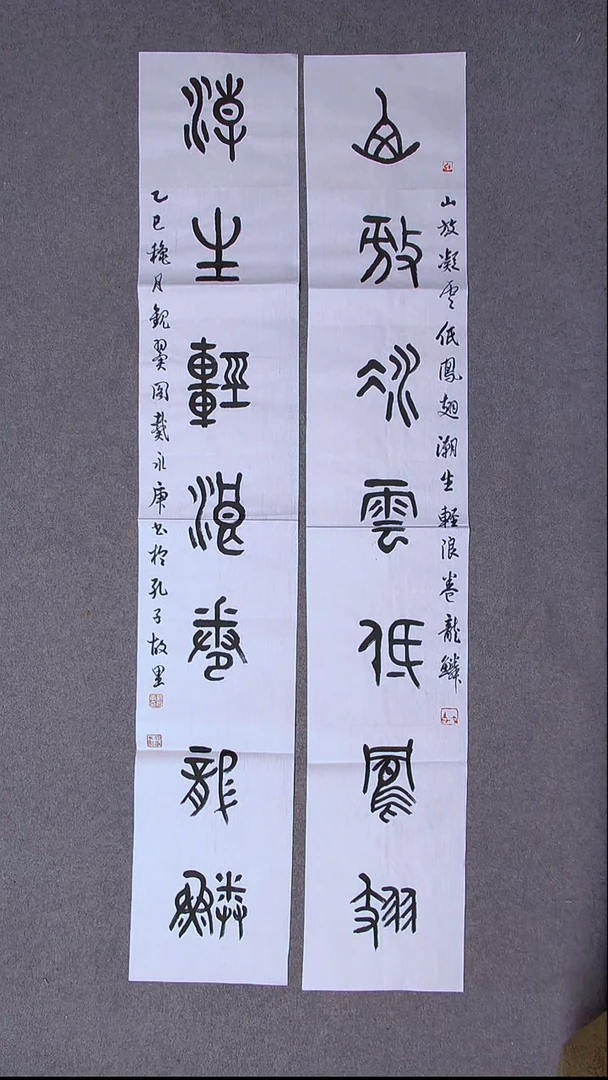 山放凝雲低鳳翅
山放凝雲低鳳翅潮生輕浪卷龍鱗
潮生輕浪卷龍鱗
乙巳穐月觀翼閣戴永庚书於孔子故里